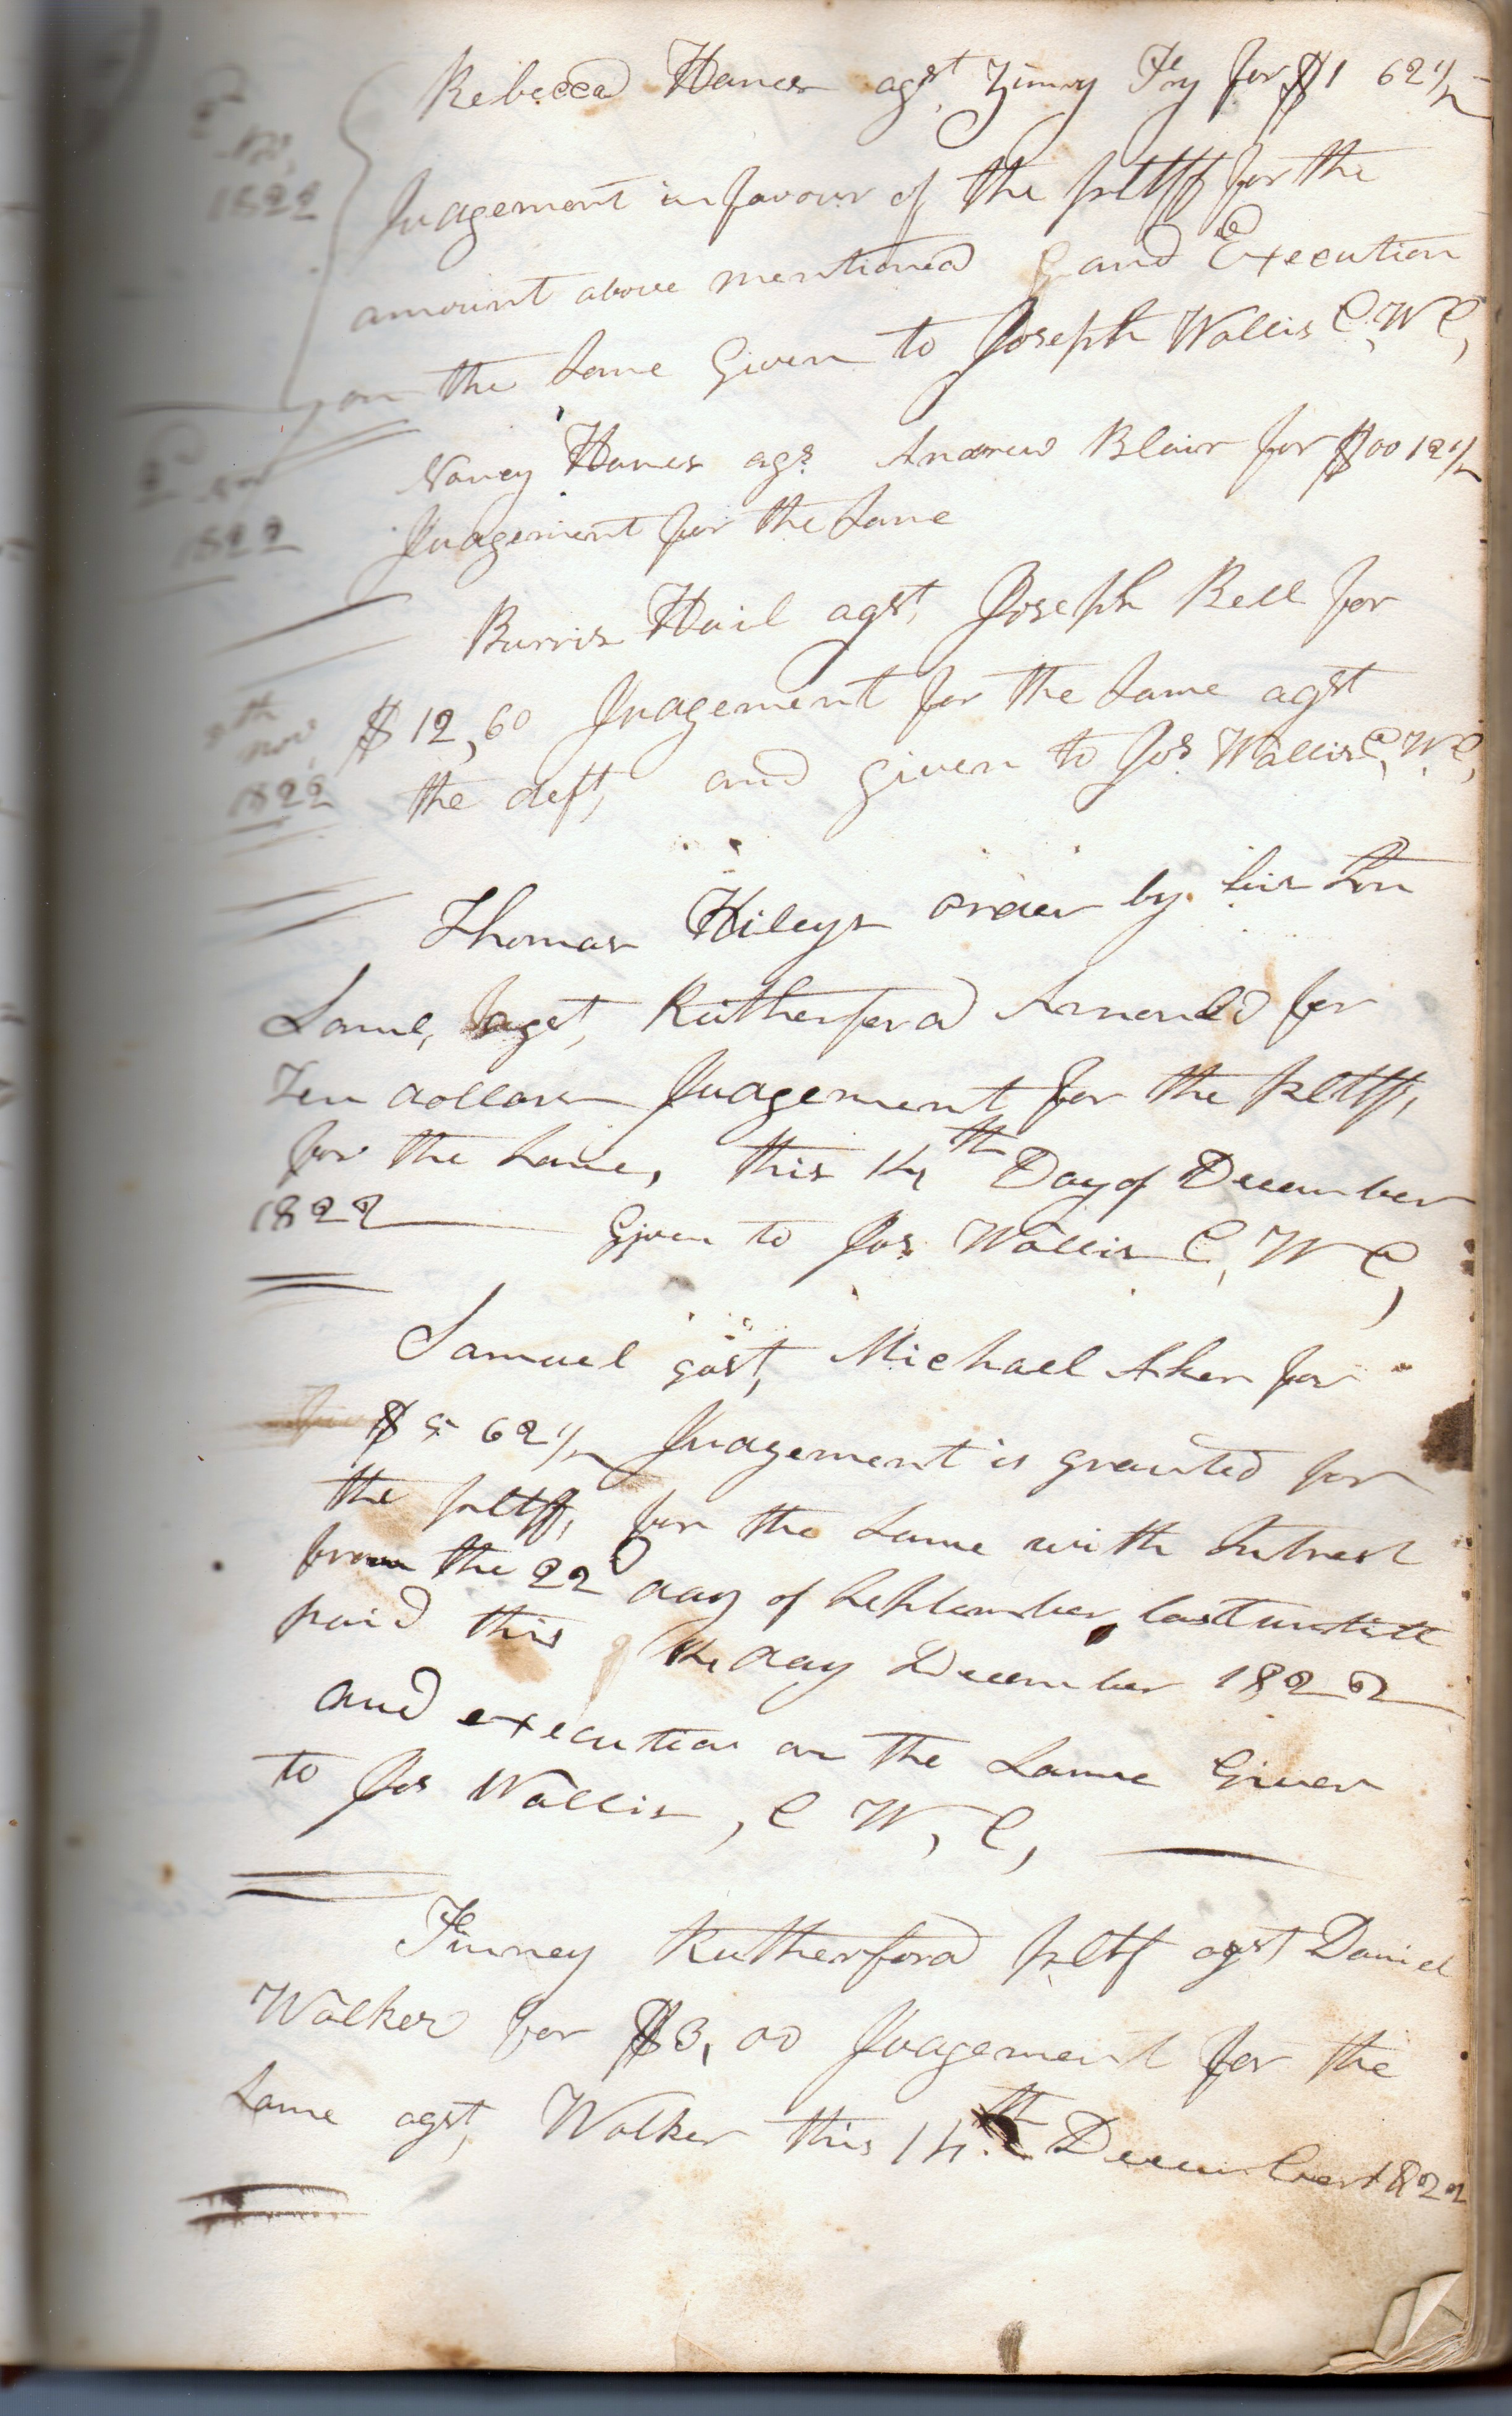 Rebecca Hanes agst, Zimry Fry for $1 62 1/2
2d
Nov,
1822
Judgement in favour of the pltff for the
amount above mentioned and Execution
on the Same Given to Joseph Wallis C, W C,
Nancy Hanes ags. Andrew Blair for $00 12 1/2
2d
1822
Judgement for the Same
Burris Hail agst, Joseph Bell for
$12,60 Judgement for the Same agst
nov
1822
the deft, and given to Jos Wallis C, W, C,
Thomas Hileys order by his Son
Saml, agst, Rutherford Arnould for
Ten dollars Judgement for the pltff,
for the Same, this 14th Day of December
1822 Given to Jos Wallis C, W C,
Samuel gost, Michael Aker for
$5 62 1/2 Judgement is granted for
the pltff, for the Same with Intrest
from the 22d day of September, last untill
paid this day December 1822
and execution on the Same Given
to Jos Wallis, C W, C,
Finney Rutherford pltf agst Daniel
Walker for $3,00 Judgement for the
Same agst, Walker this 14th December 1822